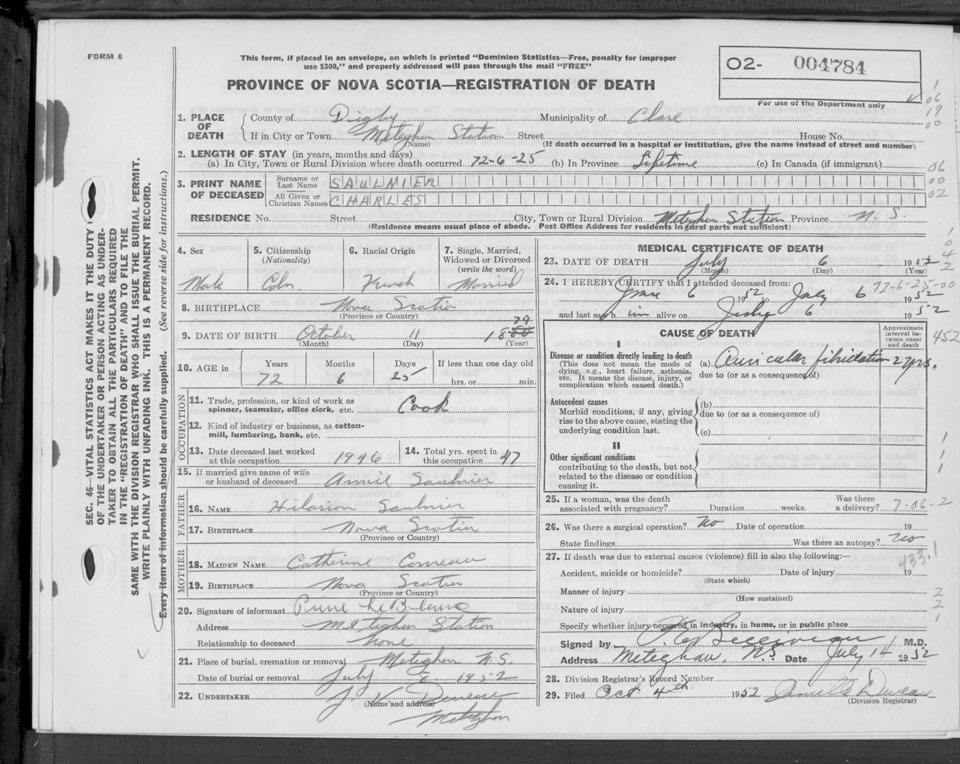 FORM 6
This form, if placed in an envelope, on which is printed "Dominion Statistics—Free, penalty for improper
use $300," and properly addressed will pass through the mail "FREE"
O2- 004784
PROVINCE OF NOVA SCOTIA—REGISTRATION OF DEATH
For use of the Department only
1. PLACE OF DEATH
County of Digby Municipality of Clare
If in City or Town Meteghan Station Street House No.
(Name) (If death occurred in a hospital or institution, give the name instead of street and number)
2. LENGTH OF STAY (in years, months and days)
(a) In City, Town or Rural Division where death occurred 72-6-25 (b) In Province Lifetime (c) In Canada (if immigrant)
3. PRINT NAME OF DECEASED
Surname or Last Name SAULNIER
All Given or Christian Names CHARLES
RESIDENCE No. Street City, Town or Rural Division Meteghan Station Province N. S.
(Residence means usual place of abode. Post Office Address for residents in rural parts not sufficient)
4. Sex Male
5. Citizenship (Nationality)
6. Racial Origin French
7. Single, Married, Widowed or Divorced (write the word) Married
8. BIRTHPLACE Nova Scotia
(Province or Country)
79
9. DATE OF BIRTH October 11 1880
(Month) (Day) (Year)
10. AGE in Years Months Days If less than one day old
72 6 25 hrs. or min.
OCCUPATION
11. Trade, profession, or kind of work as
spinner, teamster, office clerk, etc. Cook
12. Kind of industry or business, as cotton-
mill, lumbering, bank, etc.
13. Date deceased last worked
at this occupation 1946
14. Total yrs. spent in
this occupation 47
15. If married give name of wife
or husband of deceased Annie Saulnier
FATHER
16. NAME Hilarion Saulnier
17. BIRTHPLACE Nova Scotia
(Province or Country)
MOTHER
18. MAIDEN NAME Catherine Comeau
19. BIRTHPLACE Nova Scotia
(Province or Country)
20. Signature of informant LeBlanc
Address Meteghan Station
Relationship to deceased none
21. Place of burial, cremation or removal Meteghan N.S.
Date of burial or removal July 1952
22. UNDERTAKER
(Name and address)
Meteghan
MEDICAL CERTIFICATE OF DEATH
23. DATE OF DEATH July 6 1952
(Month) (Day) (Year)
72-6-25-00
24. I HEREBY CERTIFY that I attended deceased from:
June 6 1952 July 6 1952
and last saw him alive on July 6 1952
CAUSE OF DEATH
Approximate interval between onset and death
452
I
Disease or condition directly leading to death
(This does not mean the mode of
dying, e.g., heart failure, asthenia,
etc. It means the disease, injury, or
complication which caused death.)
(a) Auricular fibrillation 2 yrs.
due to (or as a consequence of)
Antecedent causes
Morbid conditions, if any, giving
rise to the above cause, stating the
underlying condition last.
(b)
due to (or as a consequence of)
(c)
II
Other significant conditions
contributing to the death, but not
related to the disease or condition
causing it.
25. If a woman, was the death
associated with pregnancy? Duration weeks. Was there a delivery?
7-06-2
26. Was there a surgical operation? No Date of operation 19
State findings Was there an autopsy? No
433.1
27. If death was due to external causes (violence) fill in also the following:—
Accident, suicide or homicide? Date of injury 19
(State which)
Manner of injury
(How sustained)
Nature of injury
Specify whether injury occurred in industry, in home, or in public place
Signed by Belliveau M.D.
Address Meteghan, N.S. Date July 14 1952
28. Division Registrar's Record Number
29. Filed Oct 4th 1952
(Division Registrar)
SEC. 46—VITAL STATISTICS ACT MAKES IT THE DUTY
OF THE UNDERTAKER OR PERSON ACTING AS UNDER-
TAKER TO OBTAIN ALL THE PARTICULARS REQUIRED
IN THE "REGISTRATION OF DEATH" AND TO FILE THE
SAME WITH THE DIVISION REGISTRAR WHO SHALL ISSUE THE BURIAL PERMIT.
WRITE PLAINLY WITH UNFADING INK. THIS IS A PERMANENT RECORD.
Every item of information should be carefully supplied. (See reverse side for instructions.)